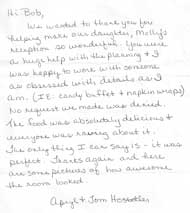 Hi Bob,
We wanted to thank you for
helping make our daughter, Molly's
reception so wonderful. You were
a huge help with the planning & I
was happy to work with someone
as obsessed with details as I
am. (IE: candy buffet & napkin wraps)
No request we made was denied.
The food was absolutely delicious &
everyone was raving about it.
The only thing I can say is - it was
perfect. Thanks again and here
are some pictures of how awesome
the room looked.
& Tom